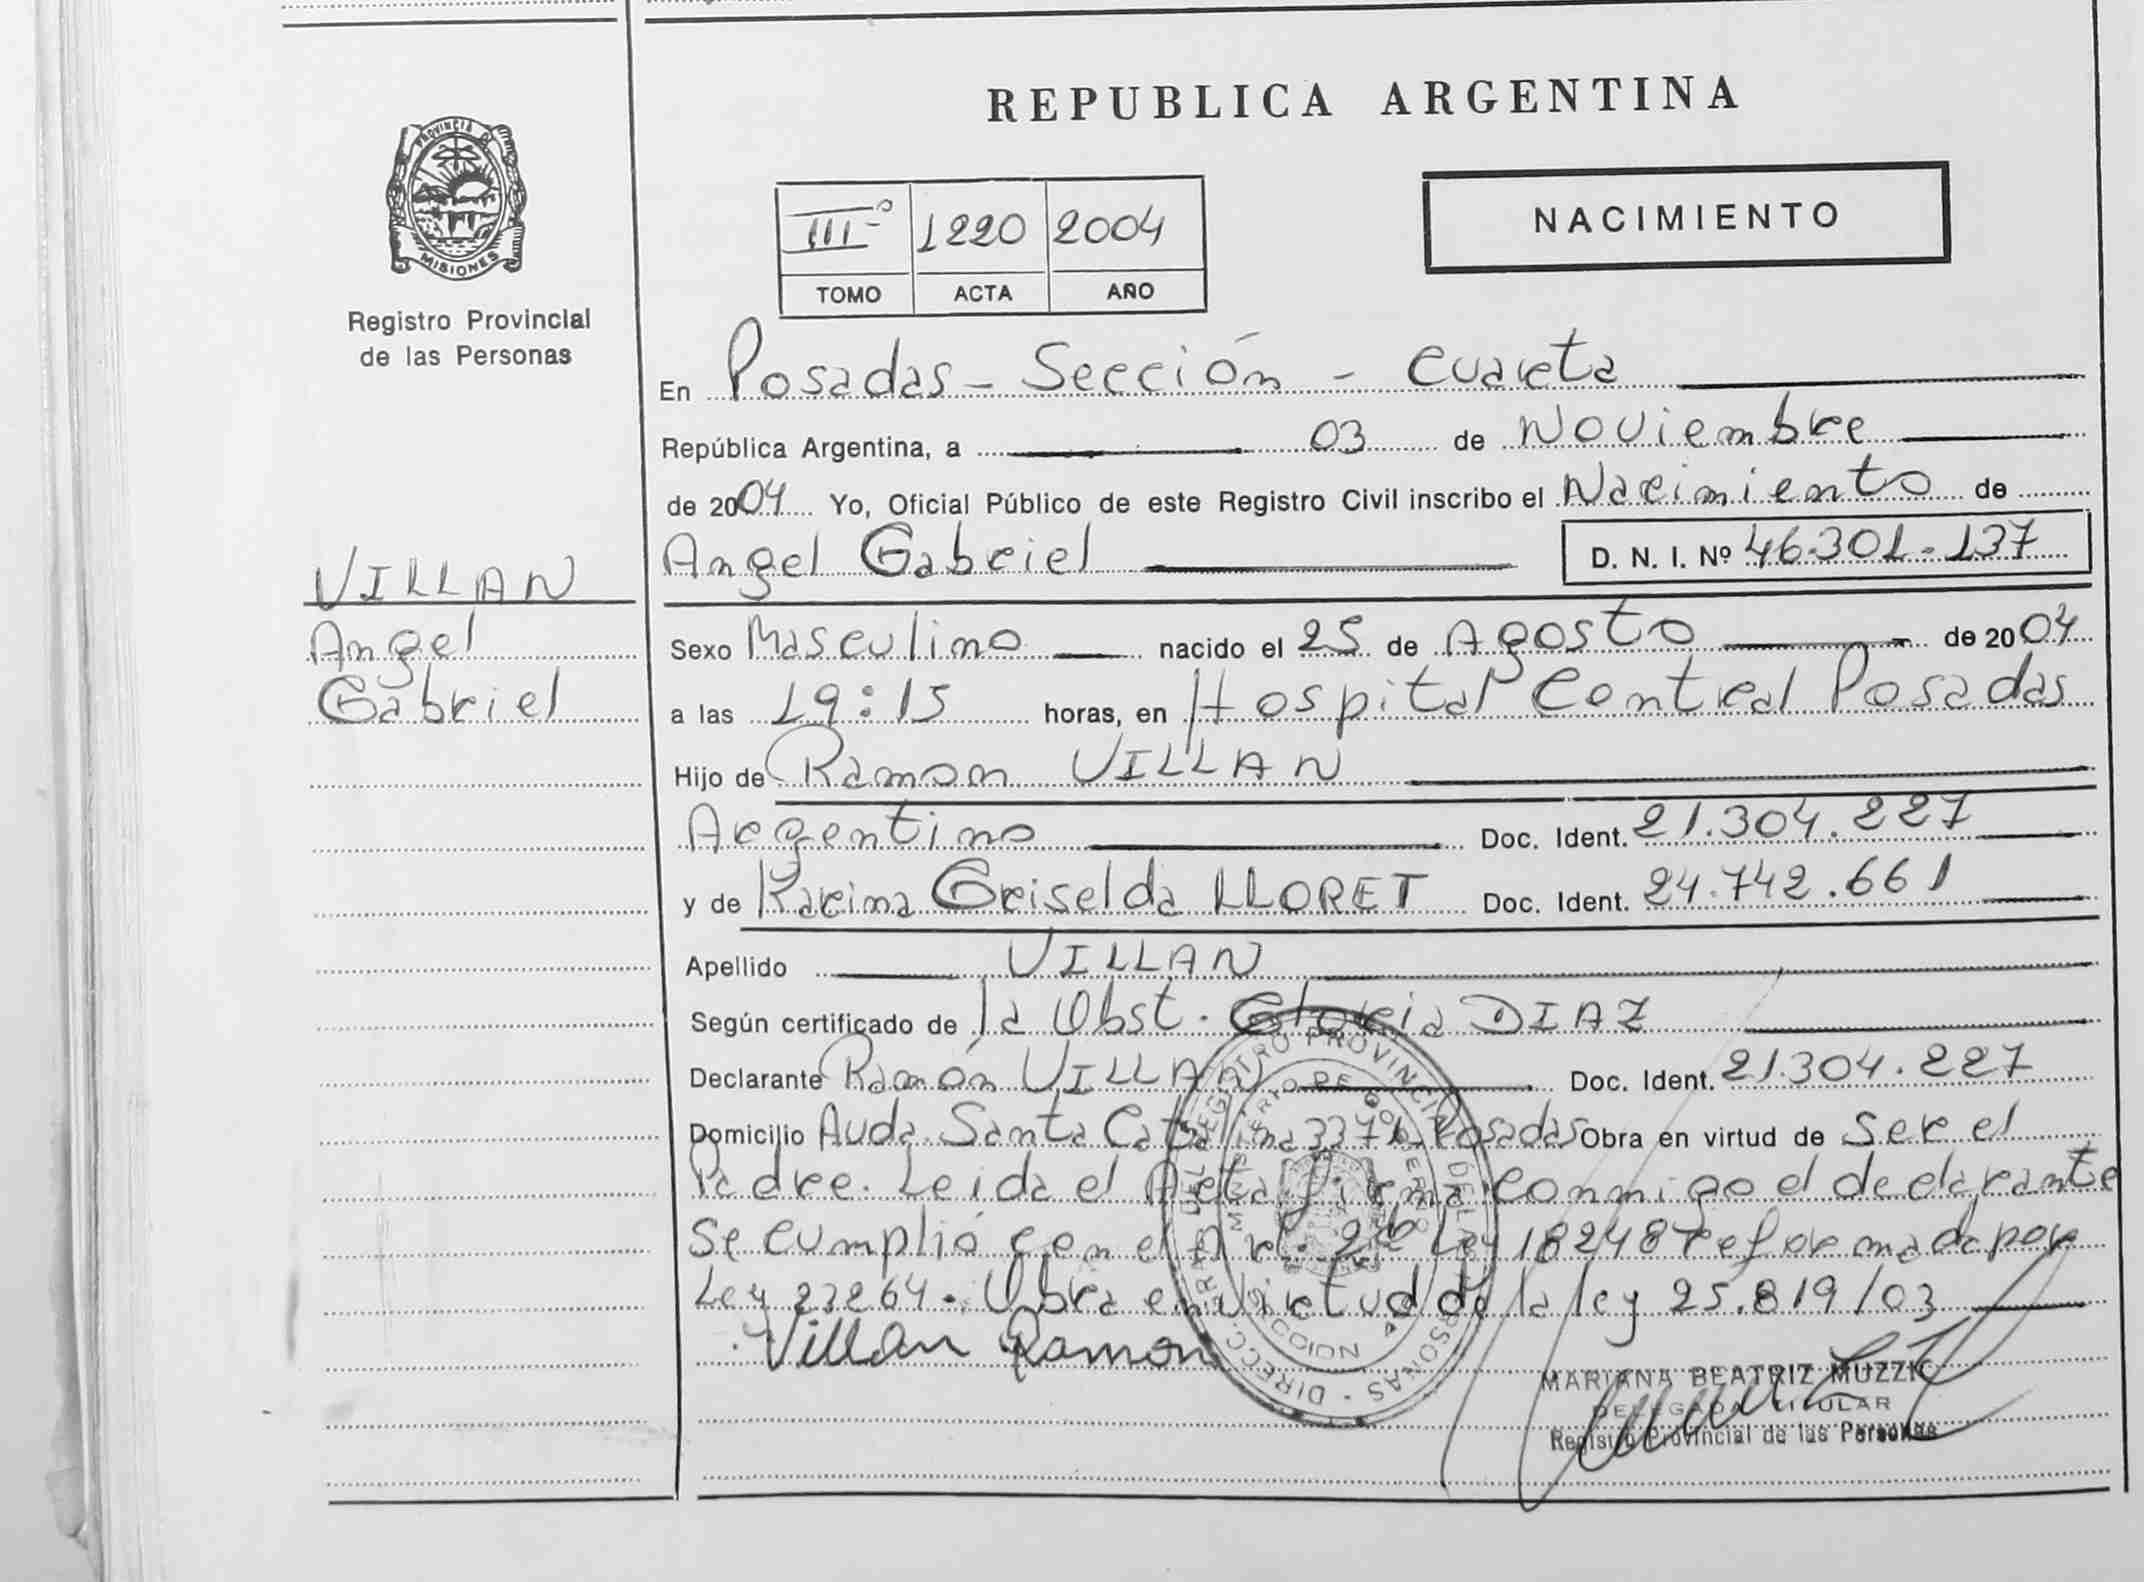 REPUBLICA ARGENTINA
PROVINCIA DE
MISIONES
Registro Provincial
de las Personas
NACIMIENTO
IIIº 1220 2004
TOMO ACTA AÑO
En Posadas - Sección - Cuarta
República Argentina, a 03 de Noviembre
de 2004 Yo, Oficial Público de este Registro Civil inscribo el Nacimiento de
Angel Gabriel D. N. I. Nº 46.301.137
VILLAN
Angel
Gabriel
Sexo Masculino nacido el 25 de Agosto de 2004
a las 19:15 horas, en Hospital Central Posadas
Hijo de Ramon VILLAN
Argentino Doc. Ident. 21.304.227
y de Karina Griselda LLORET Doc. Ident. 24.742.661
Apellido VILLAN
Según certificado de la Obst. Gloria DIAZ
Declarante Ramón VILLAN Doc. Ident. 21.304.227
Domicilio Avda. Santa Catalina Posadas Obra en virtud de Ser el
Padre. Leida el Acta firma conmigo el declarante
Se cumplió con el Art. Ley 18248 reformada por
Ley 23264. Obra en virtud de la ley 25.819/03
Villan Ramon
MARIANA BEATRIZ MUZZIC
DELEGADA TITULAR
Registro Provincial de las Personas